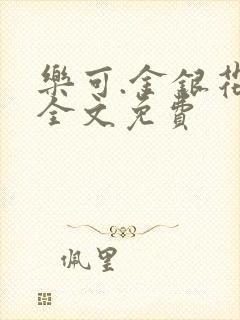 樂可.金銀花
全文免費
佩里